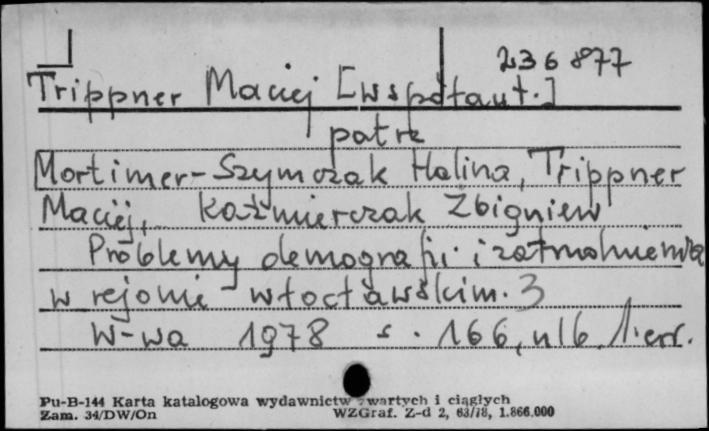 236877
Trippner Maciej [współaut.]
patrz
Mortimer-Szymczak Halina, Trippner
Maciej, Kaźmierczak Zbigniew
Problemy demografii i zatrudnienia
w rejonie włocławskim.
W-wa 1978 s. 166, nlb.
Pu-B-144 Karta katalogowa wydawnictw zwartych i ciągłych
Zam. 34/DW/On WZGraf. Z-d 2, 63/78, 1.866.000